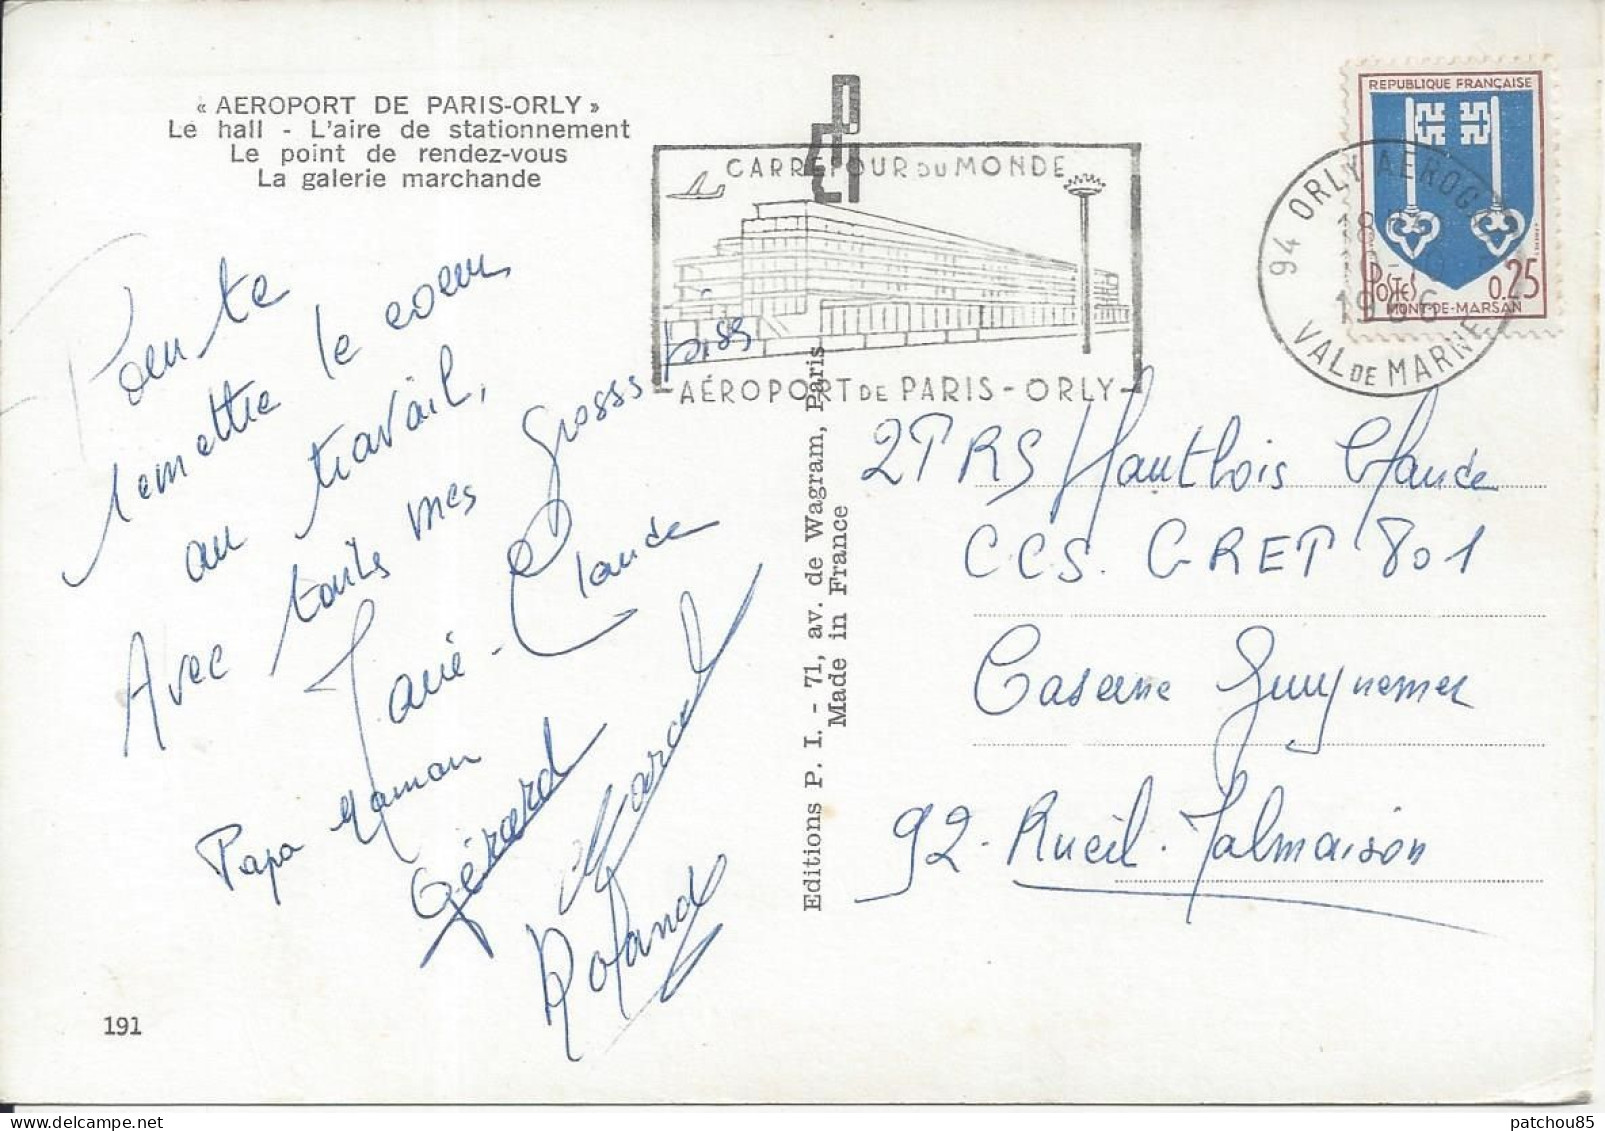 « AEROPORT DE PARIS-ORLY »
Le hall - L'aire de stationnement
Le point de rendez-vous
La galerie marchande
CARREFOUR DU MONDE
AÉROPORT DE PARIS - ORLY
REPUBLIQUE FRANÇAISE
POSTES 0.25
MONT-DE-MARSAN
94 ORLY AEROG
1966
VAL DE MARNE
Pour te
remettre le coeur
au travail,
Avec toutes mes grosses
Marie-Claude
Papa Maman
Gérard
Marcel
Roland
Editions P. I. - 71, av. de Wagram, Paris
Made in France
Hautbois Claude
CCS. GRET 801
Caserne Guynemer
92. Rueil. Malmaison
191
patchou85